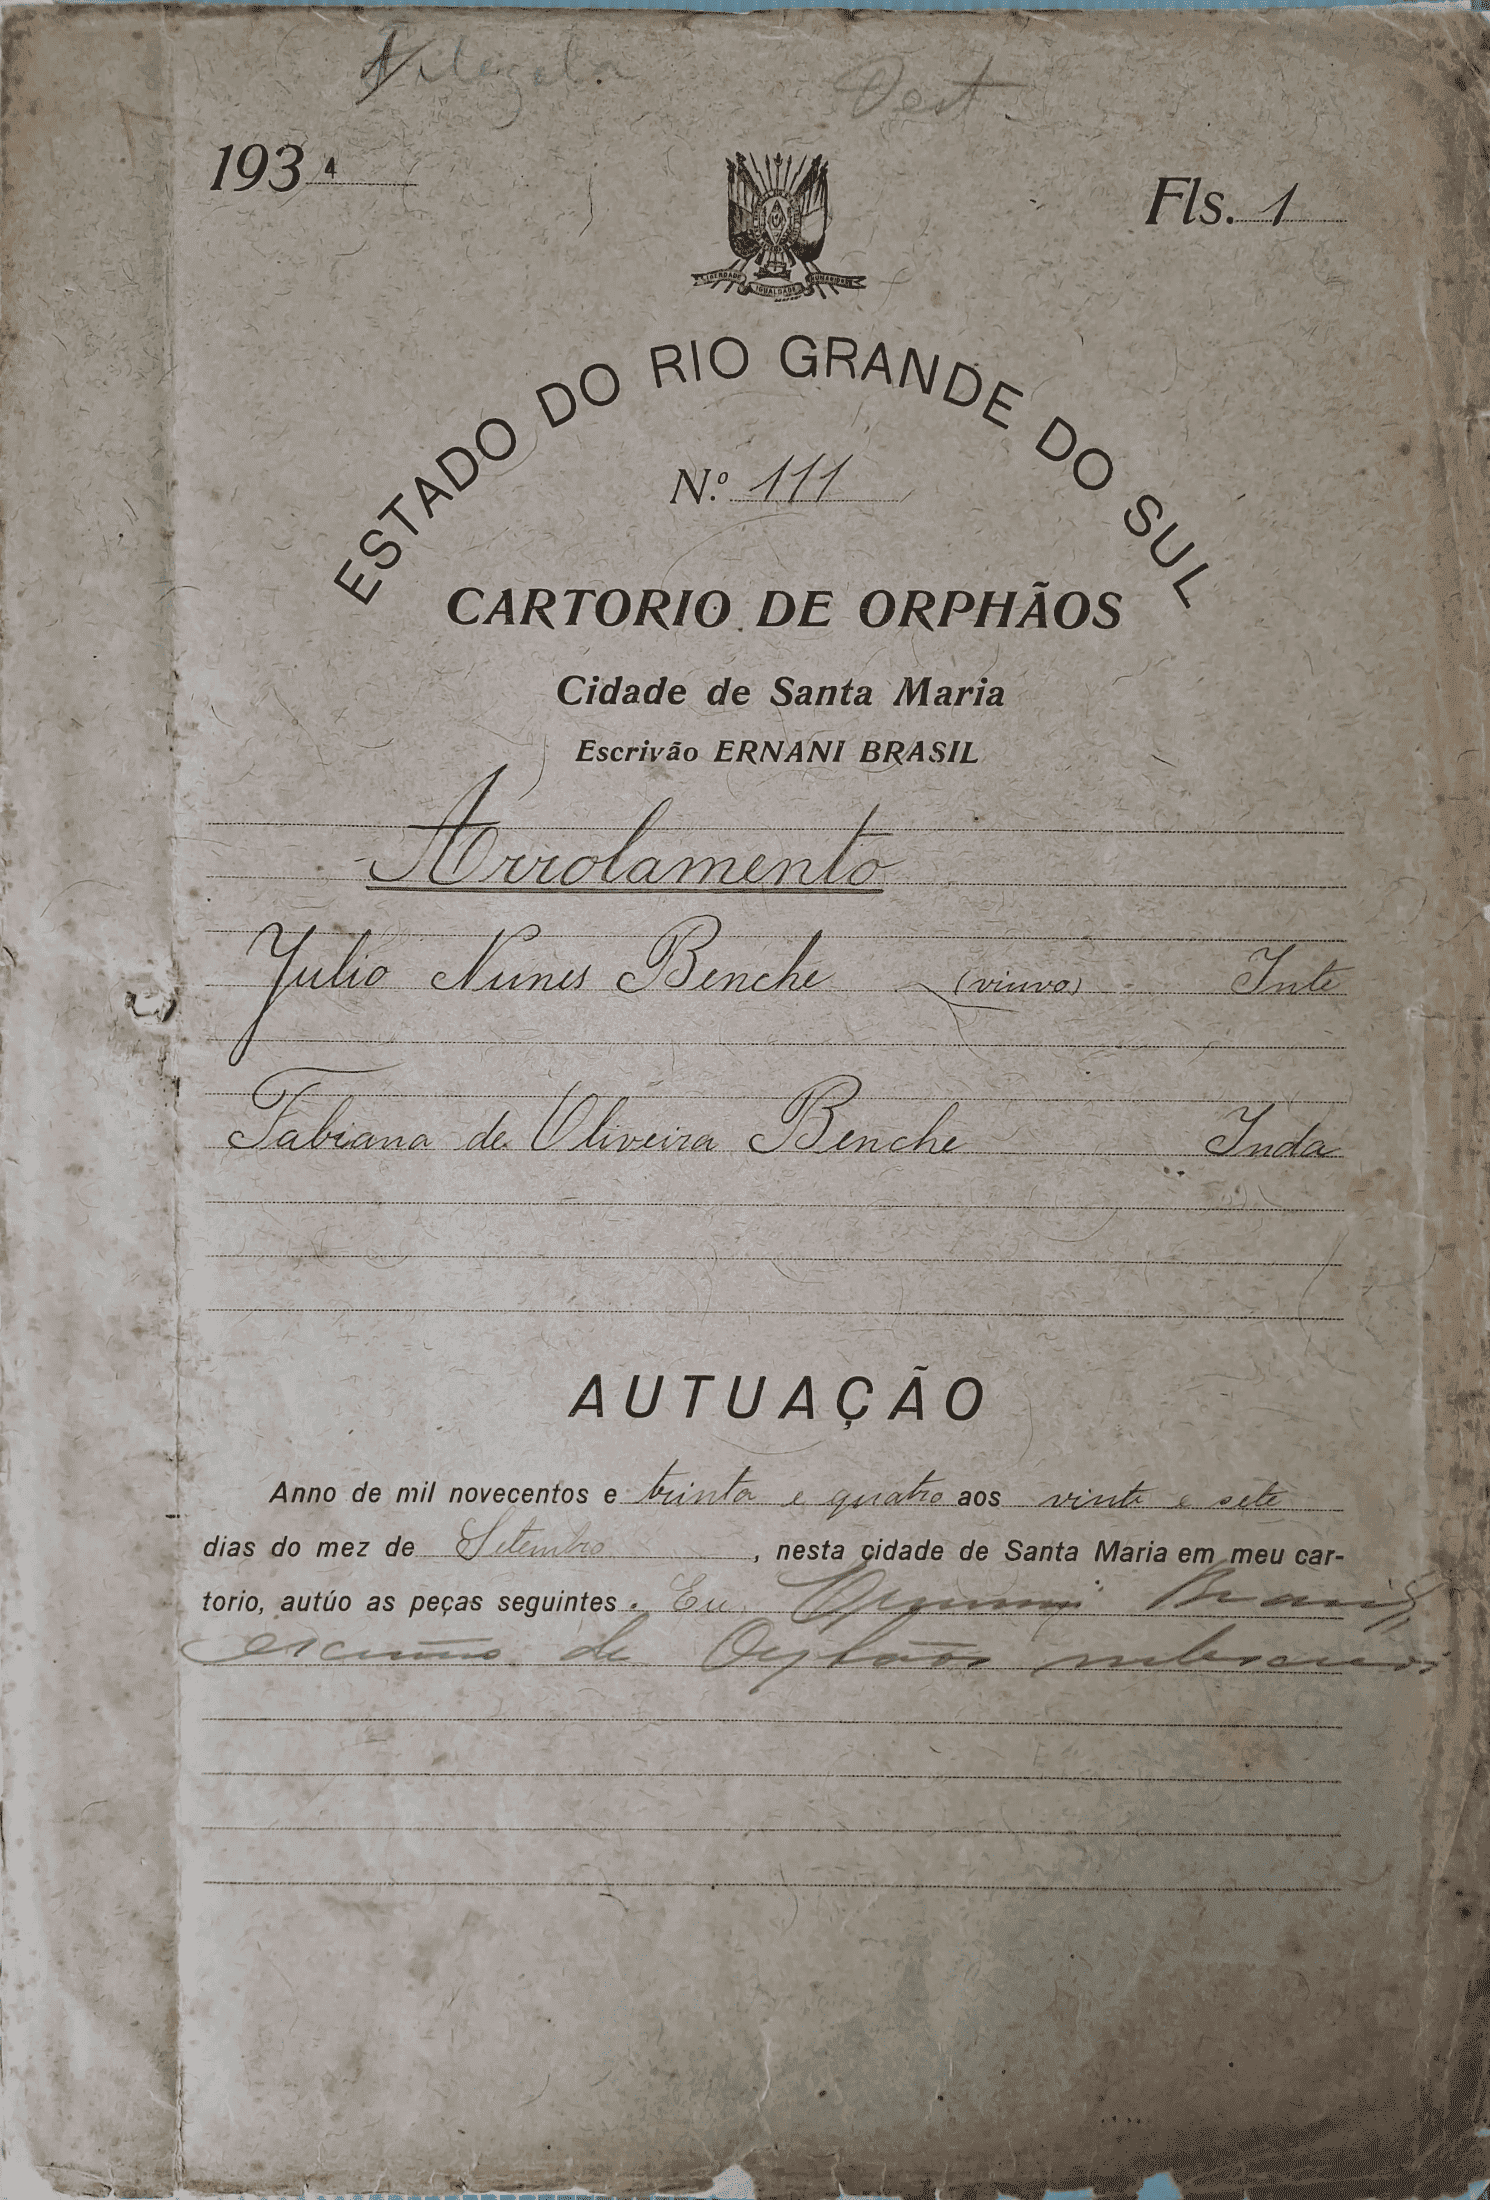 1934
Fls. 1
LIBERDADE IGUALDADE HUMANIDADE
ESTADO DO RIO GRANDE DO SUL
N.º 111
CARTORIO DE ORPHÃOS
Cidade de Santa Maria
Escrivão ERNANI BRASIL
Arrolamento
Julio Nunes Benche (viuvo) Inte
Fabiana de Oliveira Benche Inda
AUTUAÇÃO
Anno de mil novecentos e trinta e quatro aos vinte e sete
dias do mez de Setembro, nesta cidade de Santa Maria em meu car-
torio, autúo as peças seguintes. Eu Ernani Brasil,
escrivão de Orphãos subscrevi